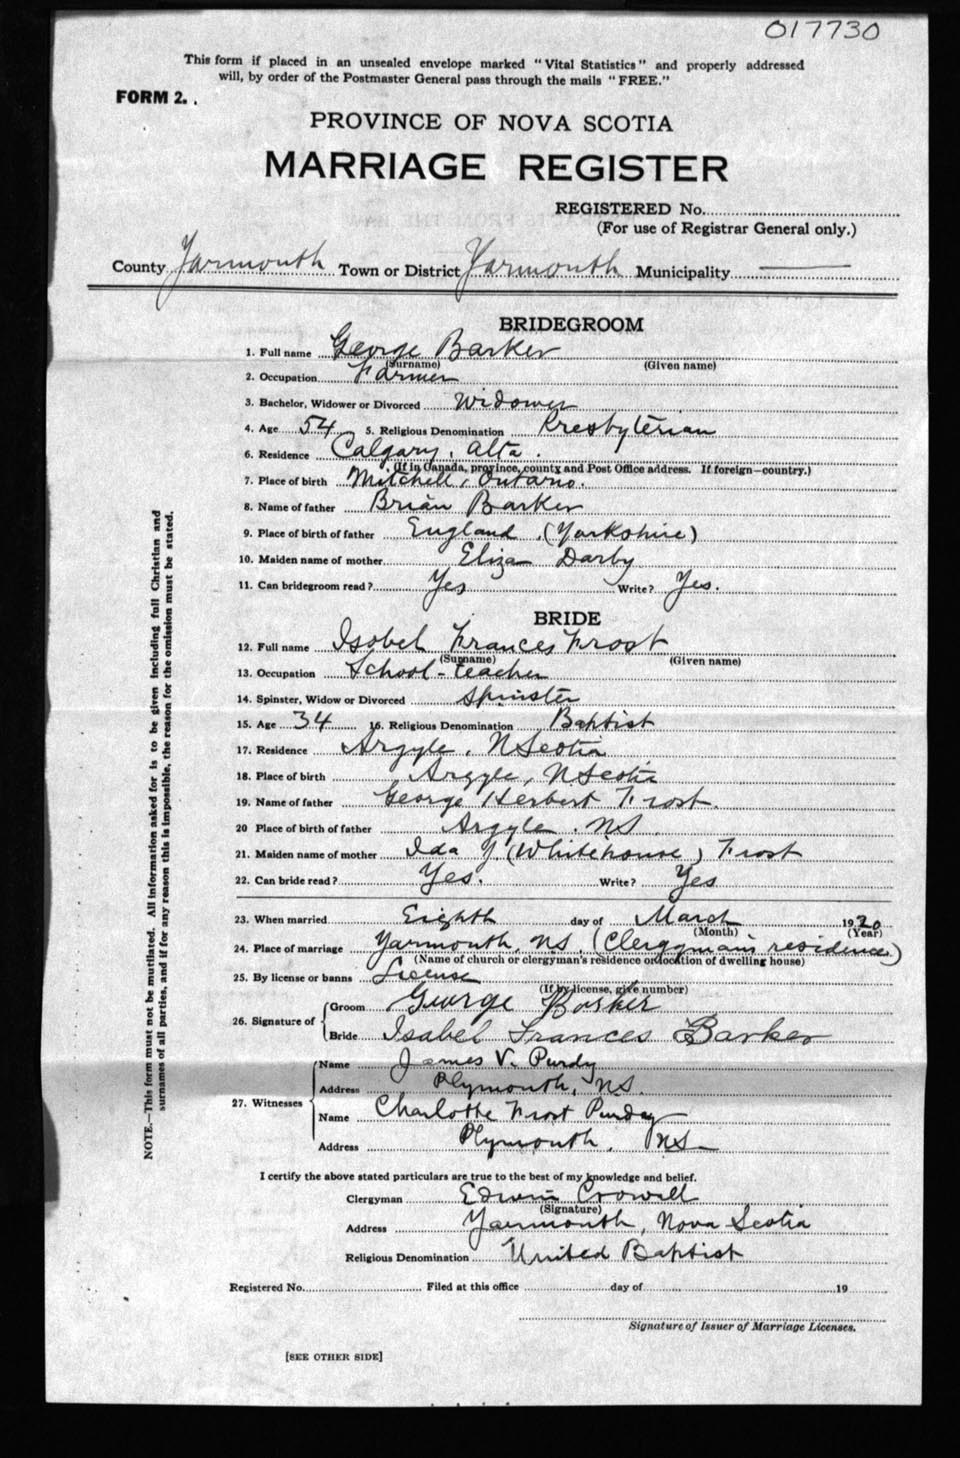 017730
This form if placed in an unsealed envelope marked "Vital Statistics" and properly addressed
will, by order of the Postmaster General pass through the mails "FREE."
FORM 2.
PROVINCE OF NOVA SCOTIA
MARRIAGE REGISTER
REGISTERED No.
(For use of Registrar General only.)
County Yarmouth Town or District Yarmouth Municipality —
BRIDEGROOM
1. Full name George Barker
(Surname) (Given name)
2. Occupation Farmer
3. Bachelor, Widower or Divorced Widower
4. Age 54 5. Religious Denomination Presbyterian
6. Residence Calgary, Alta.
(If in Canada, province, county and Post Office address. If foreign—country.)
7. Place of birth Mitchell, Ontario.
8. Name of father Brian Barker
9. Place of birth of father England (Yorkshire)
10. Maiden name of mother Eliza Darby
11. Can bridegroom read? Yes Write? Yes.
BRIDE
12. Full name Isobel Frances Frost
(Surname) (Given name)
13. Occupation School-teacher
14. Spinster, Widow or Divorced Spinster
15. Age 34 16. Religious Denomination Baptist
17. Residence Argyle, N Scotia
18. Place of birth Argyle, N Scotia
19. Name of father George Herbert Frost.
20 Place of birth of father Argyle. NS.
21. Maiden name of mother Ida J. (Whitehouse) Frost
22. Can bride read? Yes. Write? Yes
23. When married Eighth day of March 1920
(Month) (Year)
24. Place of marriage Yarmouth, NS. (Clergyman's residence)
(Name of church or clergyman's residence or location of dwelling house)
25. By license or banns License
(If by license, give number)
26. Signature of Groom George Barker
Bride Isabel Frances Barker
27. Witnesses Name James V. Purdy
Address Plymouth, NS.
Name Charlotte Frost Purdy
Address Plymouth, NS
I certify the above stated particulars are true to the best of my knowledge and belief.
Clergyman Edwin Crowell
(Signature)
Address Yarmouth, Nova Scotia
Religious Denomination United Baptist
Registered No. Filed at this office day of 19
Signature of Issuer of Marriage Licenses.
[SEE OTHER SIDE]
NOTE.—This form must not be mutilated. All information asked for is to be given including full Christian and
surnames of all parties, and if for any reason this is impossible, the reason for the omission must be stated.